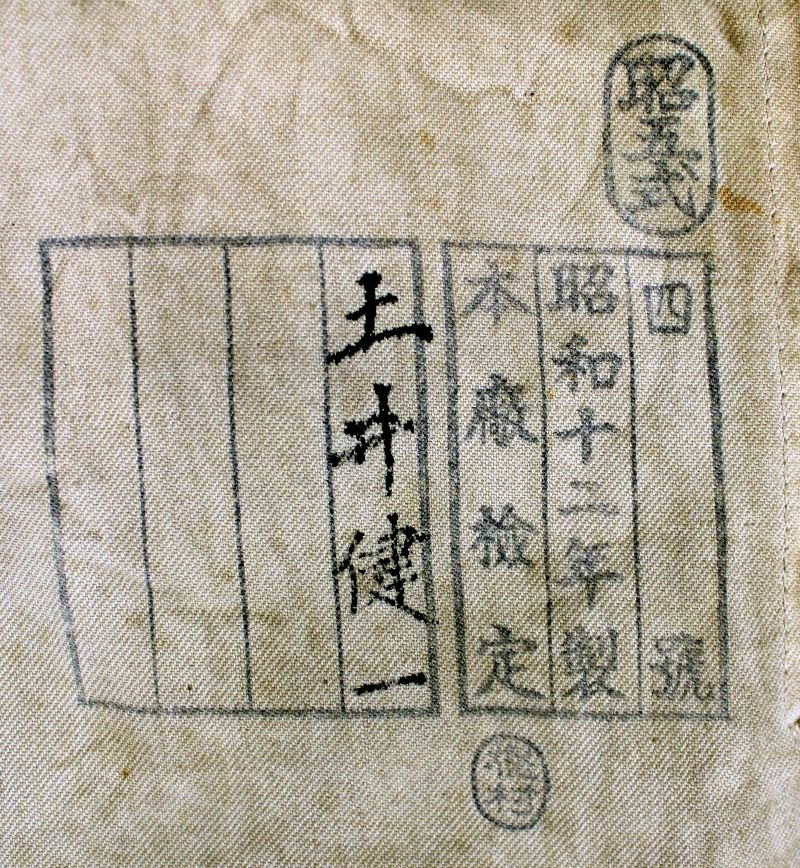 昭五式
四號
昭和十二年製
本廠檢定
土井健一